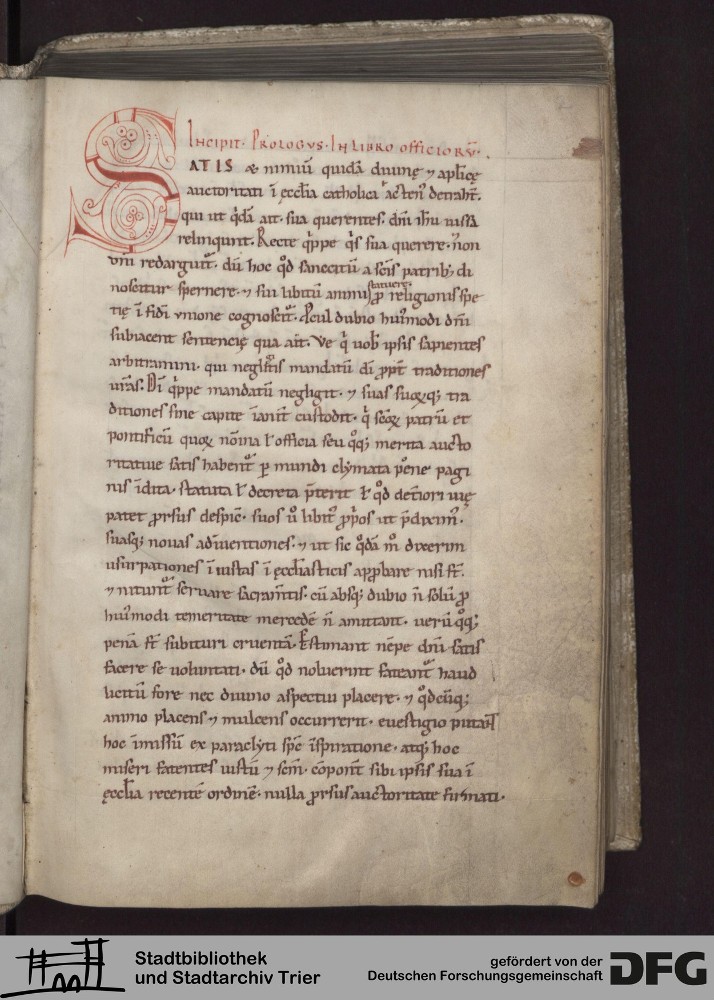 INCIPIT · PROLOGVS · IN LIBRO OFFICIORṼ ·
SATIS & nimiũ quidã diuinę ⁊ aplicę
auctoritati ĩ ęcclia catholica acten' detrah̃t.
qui ut q̊dã ait. sua querentes. dñi ihũ iusta
relinqunt. Recte q̃ppe q̃s sua querere. ñon
uñi redarguit̃. dũ hoc q̊d sanccitũ a scĩs patrib; di
noscitur spernere. ⁊ sui libitũ animi statuere p̃ religionis spe
tię ĩ fidi unione cognoscit̃. Procul dubio hui'modi dñi
subiacent sentencię qua ait. Ve q̃ uob̃ ipsis sapientes
arbitramini. qui neglectis mandatũ di ꝓpt̃ traditiones
uñas. Di q̃ppe mandatũ negligit. ⁊ suas suoꝝq; tra
ditiones sine capite ĩanit̃ custodit. q̃ scõꝝ patrũ et
pontificũ quoꝝ nõina ł officia seu q̊q; merita aucto
ritatiue satis habent̃ p̱ mundi clymata pene pagi
nis ĩdita. statuta ł decreta p̃terit ł q̊d det̃iori uię
patet ꝓrsus despic̃. suos ũ libit' ꝓp̃os ut p̃dixim'.
suasq; nouas adĩuentiones. ⁊ ut sic q̊dã m̊ dixerim
usurpationes ĩiustas ĩ ęccliasticis apꝓbare nisi st̃.
⁊ nitunt̃ seruare sacram̃tis. cũ absq; dubio ñ solũ ꝓ
hui'modi temeritate mercedẽ ñ amittant. uerũ q̊q;
penã st̃ subituri cruentã. Estimant nẽpe dñm satis
facere se uoluntati. dũ q̊d noluerint fateant̃ haud
licitũ fore nec diuino aspectui placere. ⁊ q̊dcũq;
animo placens ⁊ mulcens occurrerit. euestigio putant
hoc ĩmissũ ex paraclyti sp̃c ĩspiratione. atq; hoc
miseri fatentes iustũ ⁊ scm̃. cõpont̃ sibi ipsis sua ĩ
ęcclia recentẽ ordinẽ. nulla ꝓrsus auctoritate firmati.
Stadtbibliothek
und Stadtarchiv Trier
gefördert von der
Deutschen Forschungsgemeinschaft
DFG